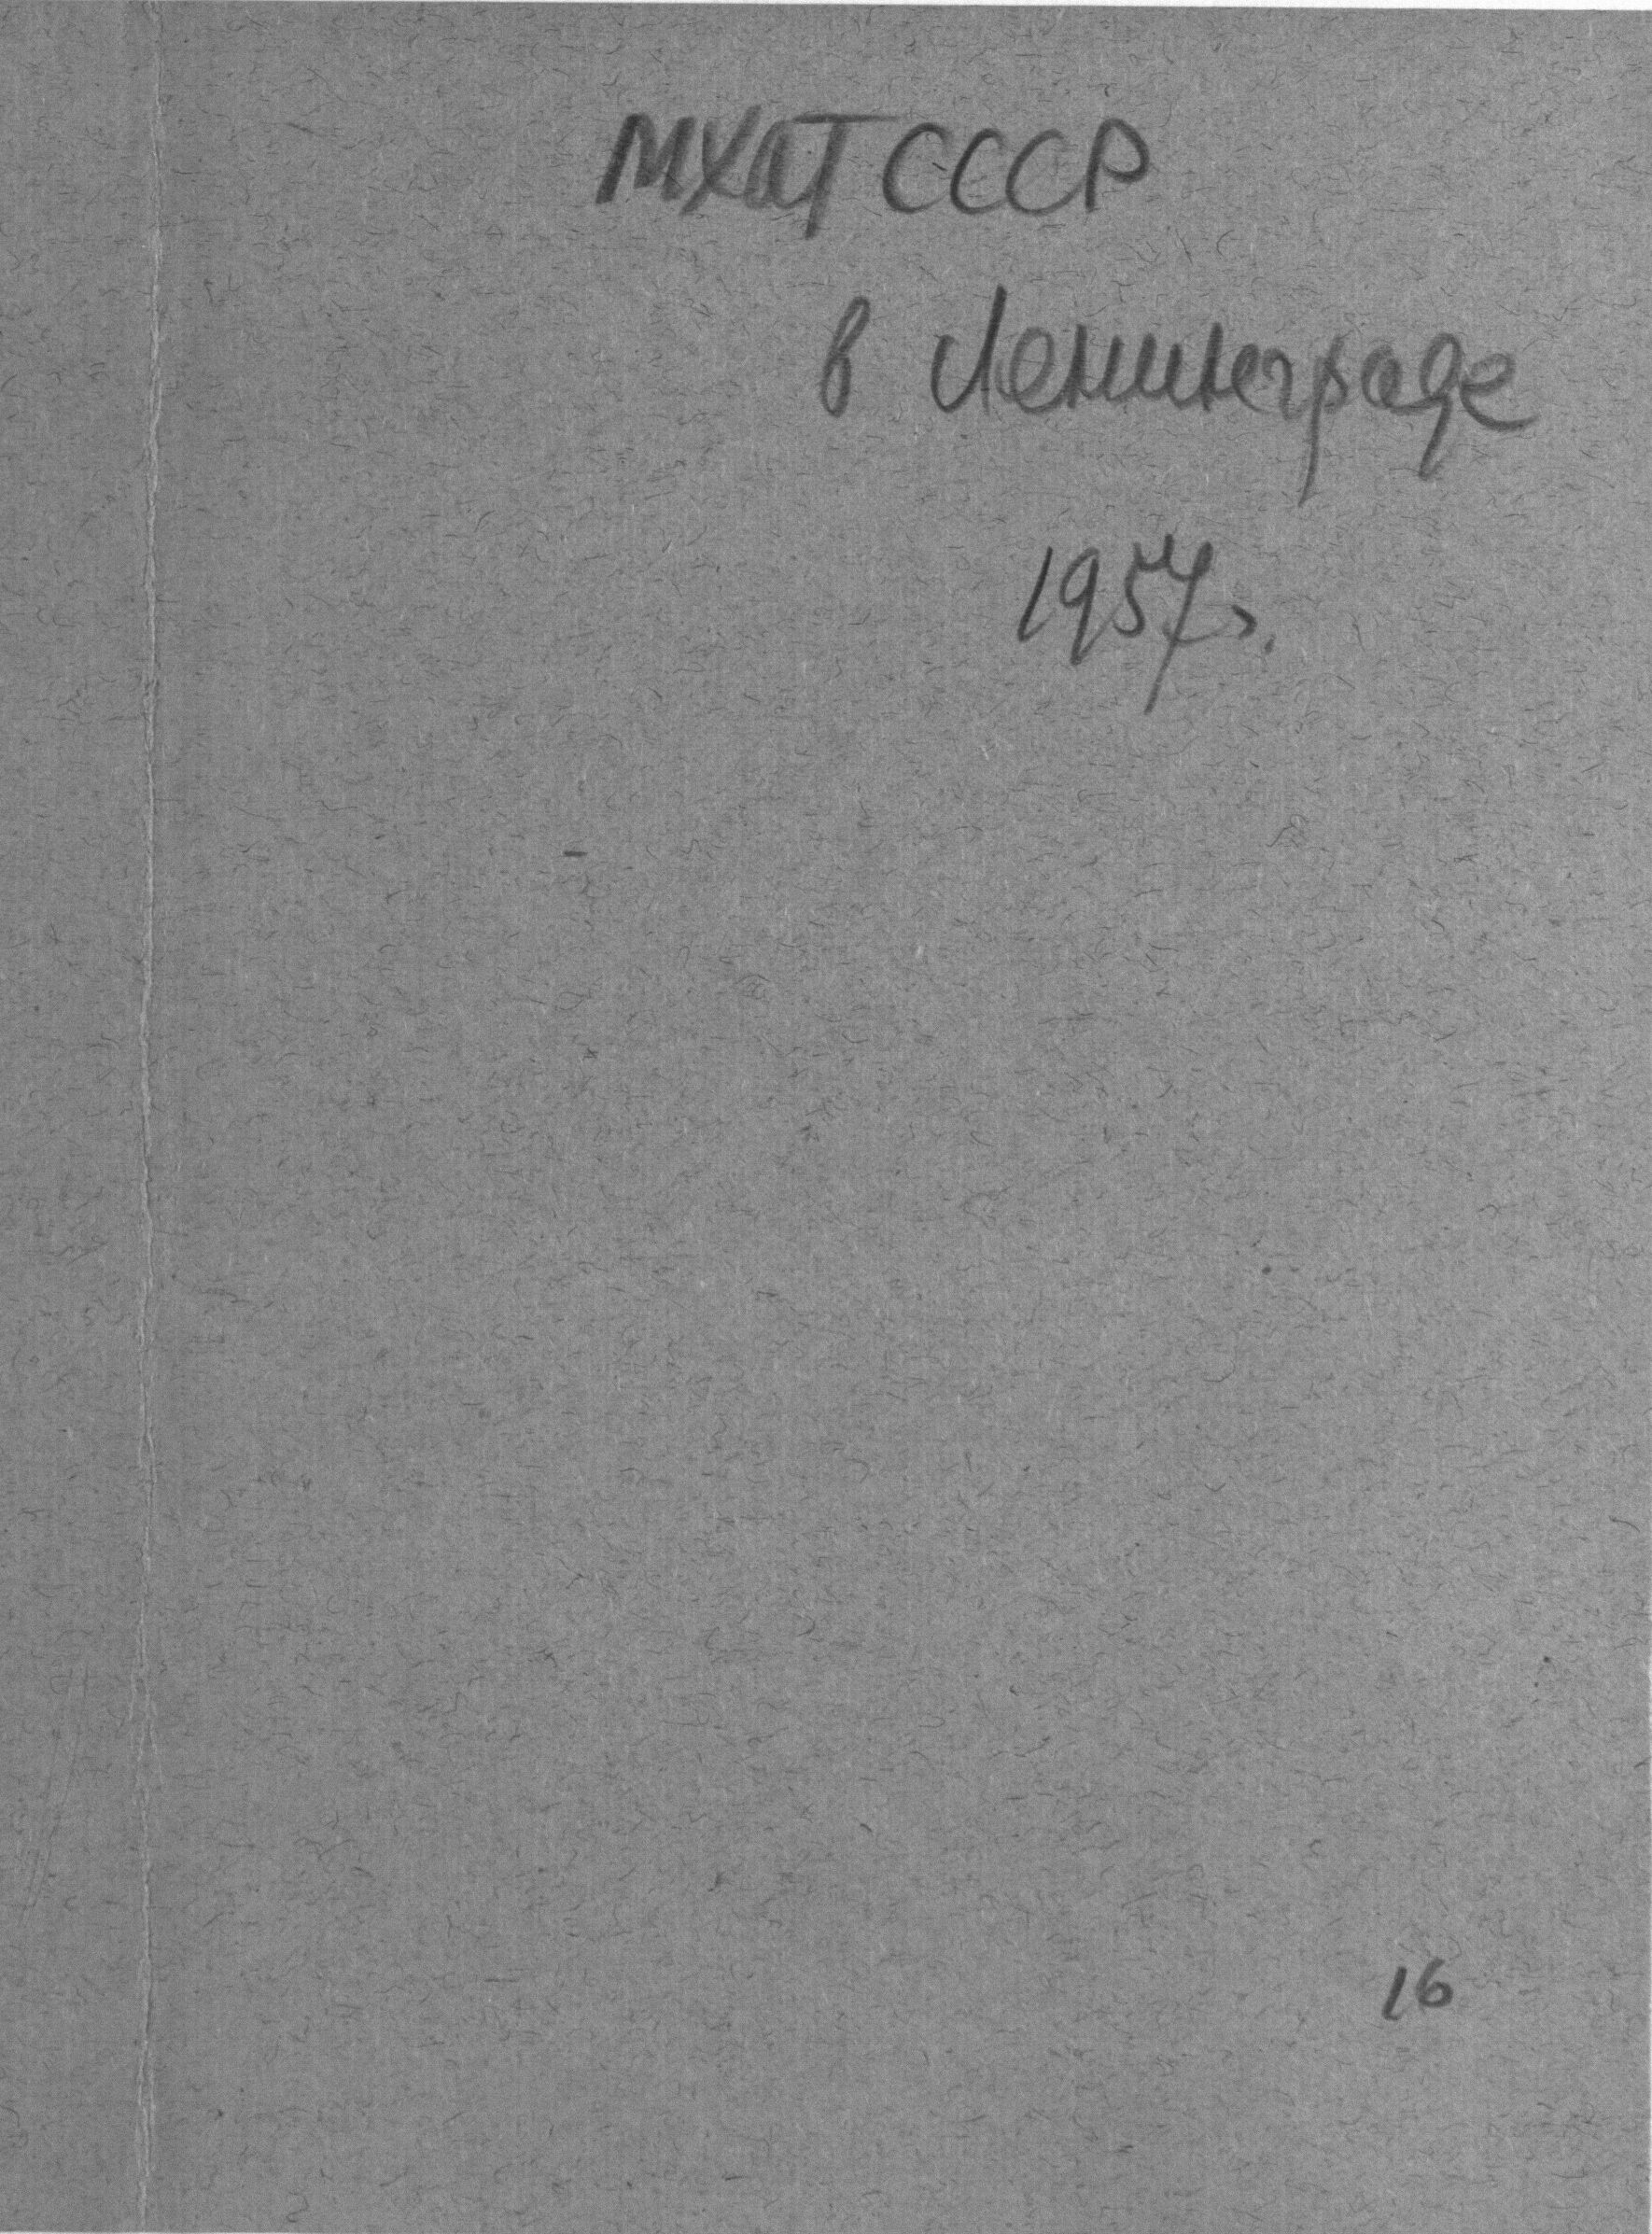 МХАТ СССР
в Ленинграде
1957г.
16